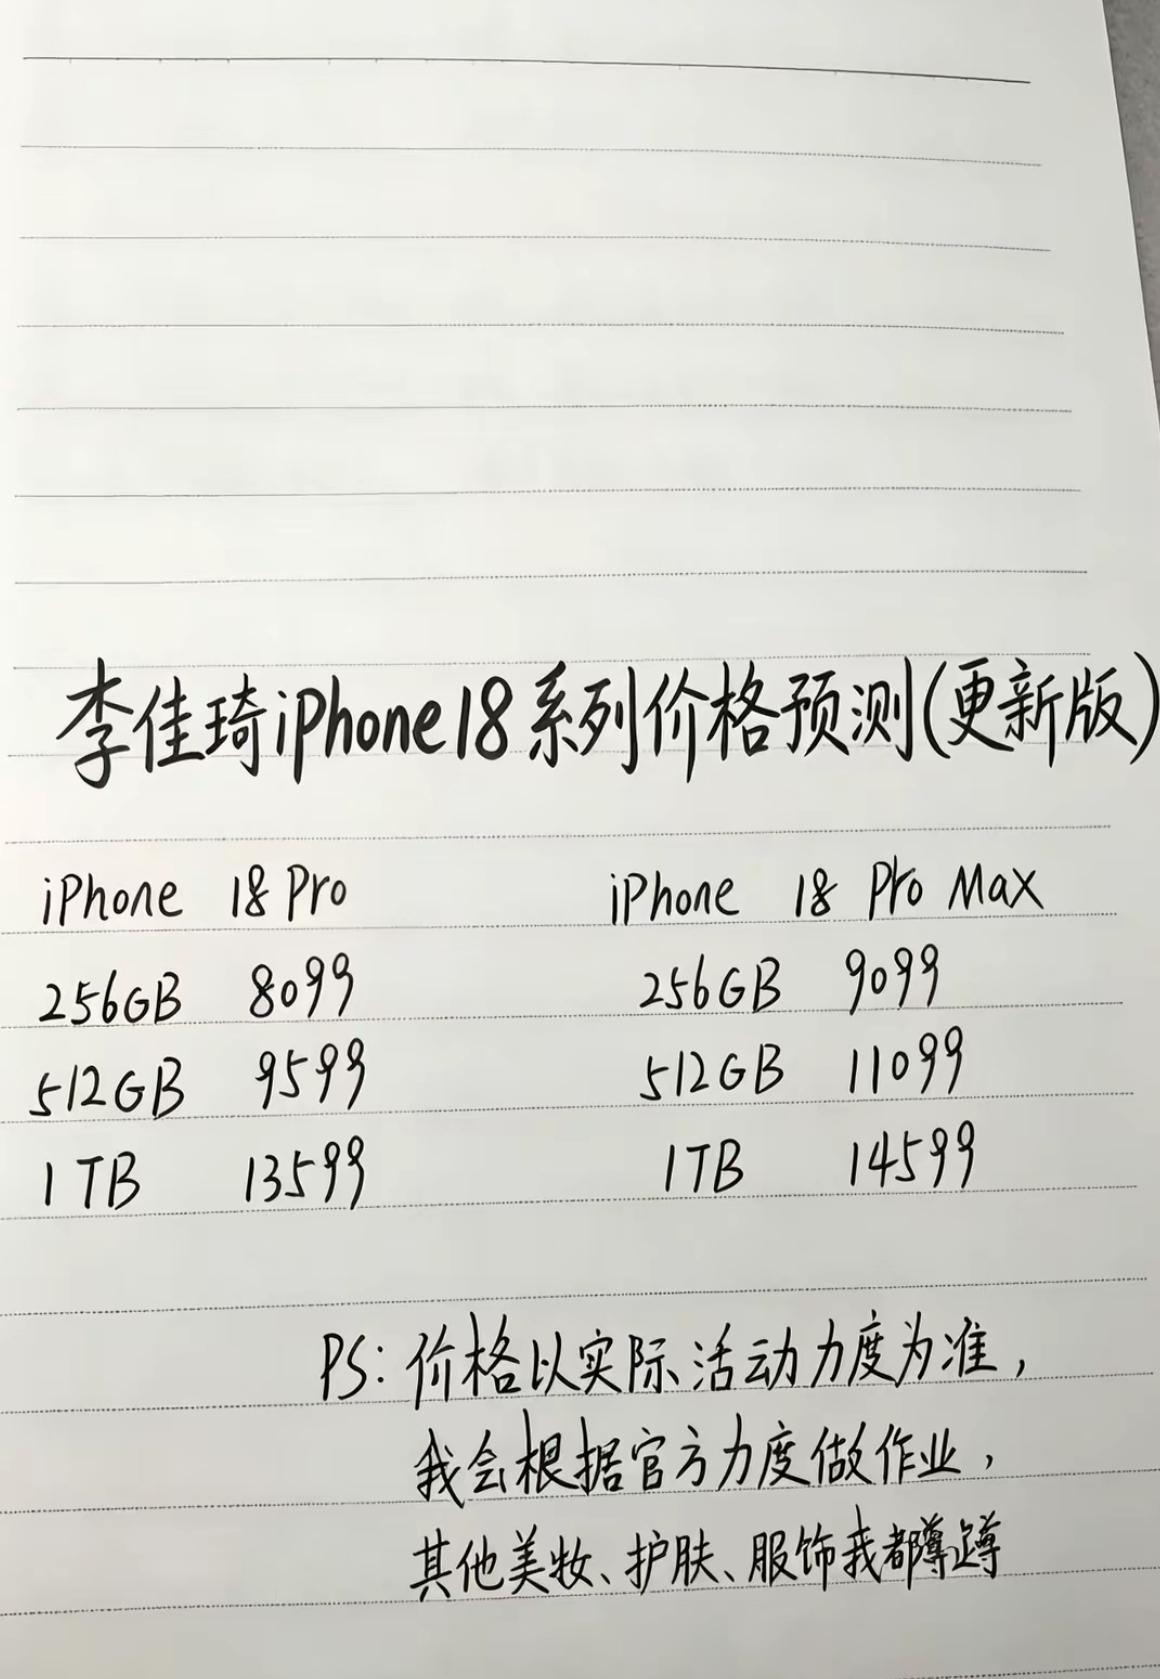 李佳琦iPhone18系列价格预测(更新版)
iPhone 18 Pro iPhone 18 Pro Max
256GB 8099 256GB 9099
512GB 9599 512GB 11099
1TB 13599 1TB 14599
PS:价格以实际活动力度为准,
我会根据官方力度做作业,
其他美妆、护肤、服饰我都蹲蹲